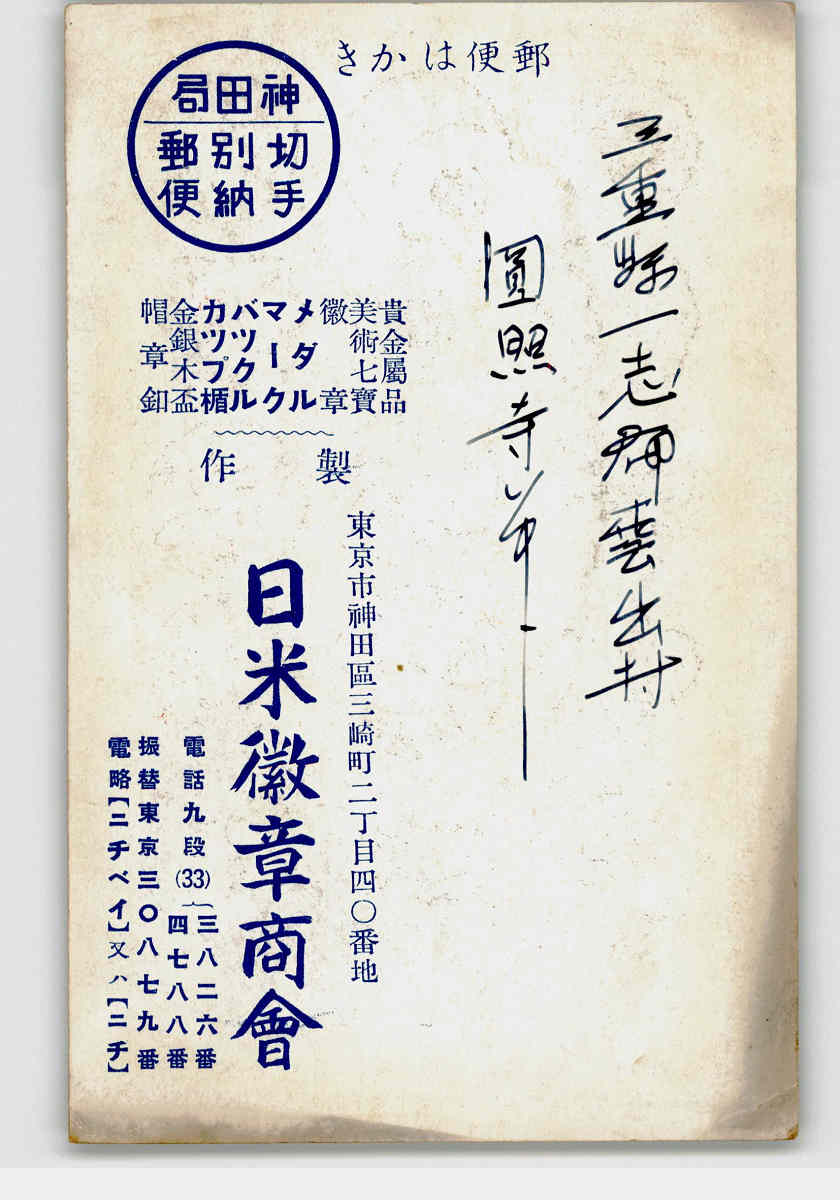 郵便はかき
三重縣一志郡雲出村
圓照寺
神田局
切手
別納
郵便
貴金屬品
美術七寶
徽章
メダル
マーク
バツクル
カツプ楯
金銀木盃
帽章釦
製作
東京市神田區三崎町二丁目四〇番地
日米徽章商會
電話九段(33)
三八二六番
四七八八番
振替東京三〇八七九番
電略【ニチベイ】又ハ【ニチ】